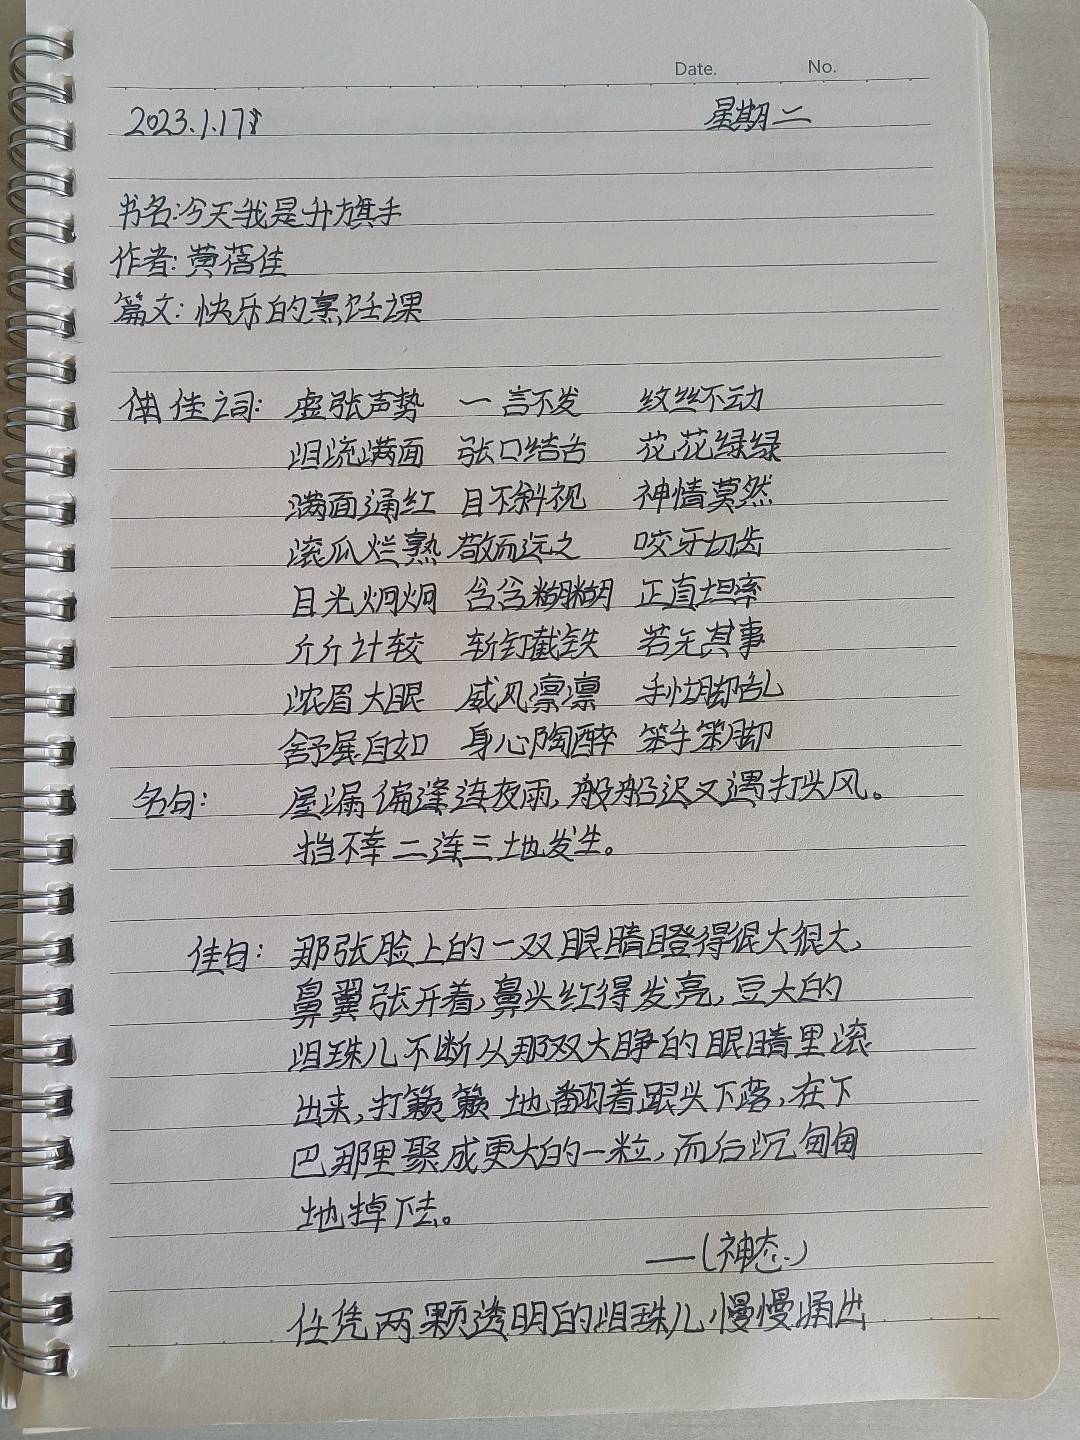 Date. No.
2023.1.17 星期二
书名:今天我是升旗手
作者:黄蓓佳
篇文:快乐的烹饪课
佳词: 虚张声势 一言不发 纹丝不动
泪流满面 张口结舌 花花绿绿
满面通红 目不斜视 神情莫然
滚瓜烂熟 敬而远之 咬牙切齿
目光炯炯 含含糊糊 正直坦率
斤斤计较 斩钉截铁 若无其事
浓眉大眼 威风凛凛 手忙脚乱
舒展自如 身心陶醉 笨手笨脚
名句: 屋漏偏逢连夜雨,船迟又遇打头风。
不幸二连三地发生。
佳句: 那张脸上的一双眼睛瞪得很大很大,
鼻翼张开着,鼻头红得发亮,豆大的
泪珠儿不断从那双大睁的眼睛里滚
出来,扑簌簌地翻着跟头下落,在下
巴那里聚成更大的一粒,而后沉甸甸
地掉下去。
——(神态)
任凭两颗透明的泪珠儿慢慢涌出